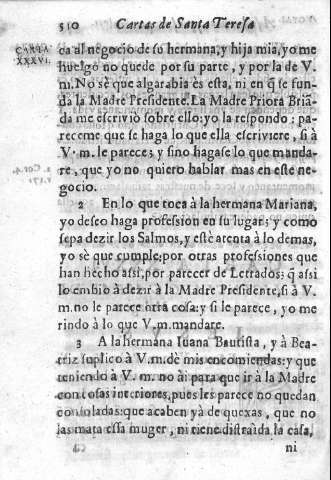 510 Cartas de Santa Teresa
CARTA
XXXVI.
ca al negocio de su hermana, y hija mia, yo me
huelgo no quede por su parte, y por la de V.
m. No sè que algarabia es esta, ni en q̃ se fun-
da la Madre Presidente. La Madre Priora Briã-
da me escriviò sobre ello: yo la respondo: pa-
receme que se haga lo que ella escriviere, si à
V. m. le parece; y sino hagase lo que manda-
re, que yo no quiero hablar mas en este ne-
gocio.
2 En lo que toca à la hermana Mariana,
yo deseo haga profession en su lugar; y como
sepa dezir los Salmos, y estè atenta à lo demas,
yo sè que cumple: por otras professiones que
han hecho assi, por parecer de Letrados: q̃ assi
lo embio à dezir à la Madre Presidente, si à V.
m. no le parece otra cosa: y si le parece, yo me
rindo à lo que V. m. mandare.
3 A la hermana Iuana Bautista, y à Bea-
triz suplico à V. m. dè mis encomiendas: y que
teniendo à V. m. no ài para que ir à la Madre
con cosas interiores, pues les parece no quedan
consoladas: que acaben yà de quexas, que no
las mata essa muger, ni tiene distraìda la casa,
ni